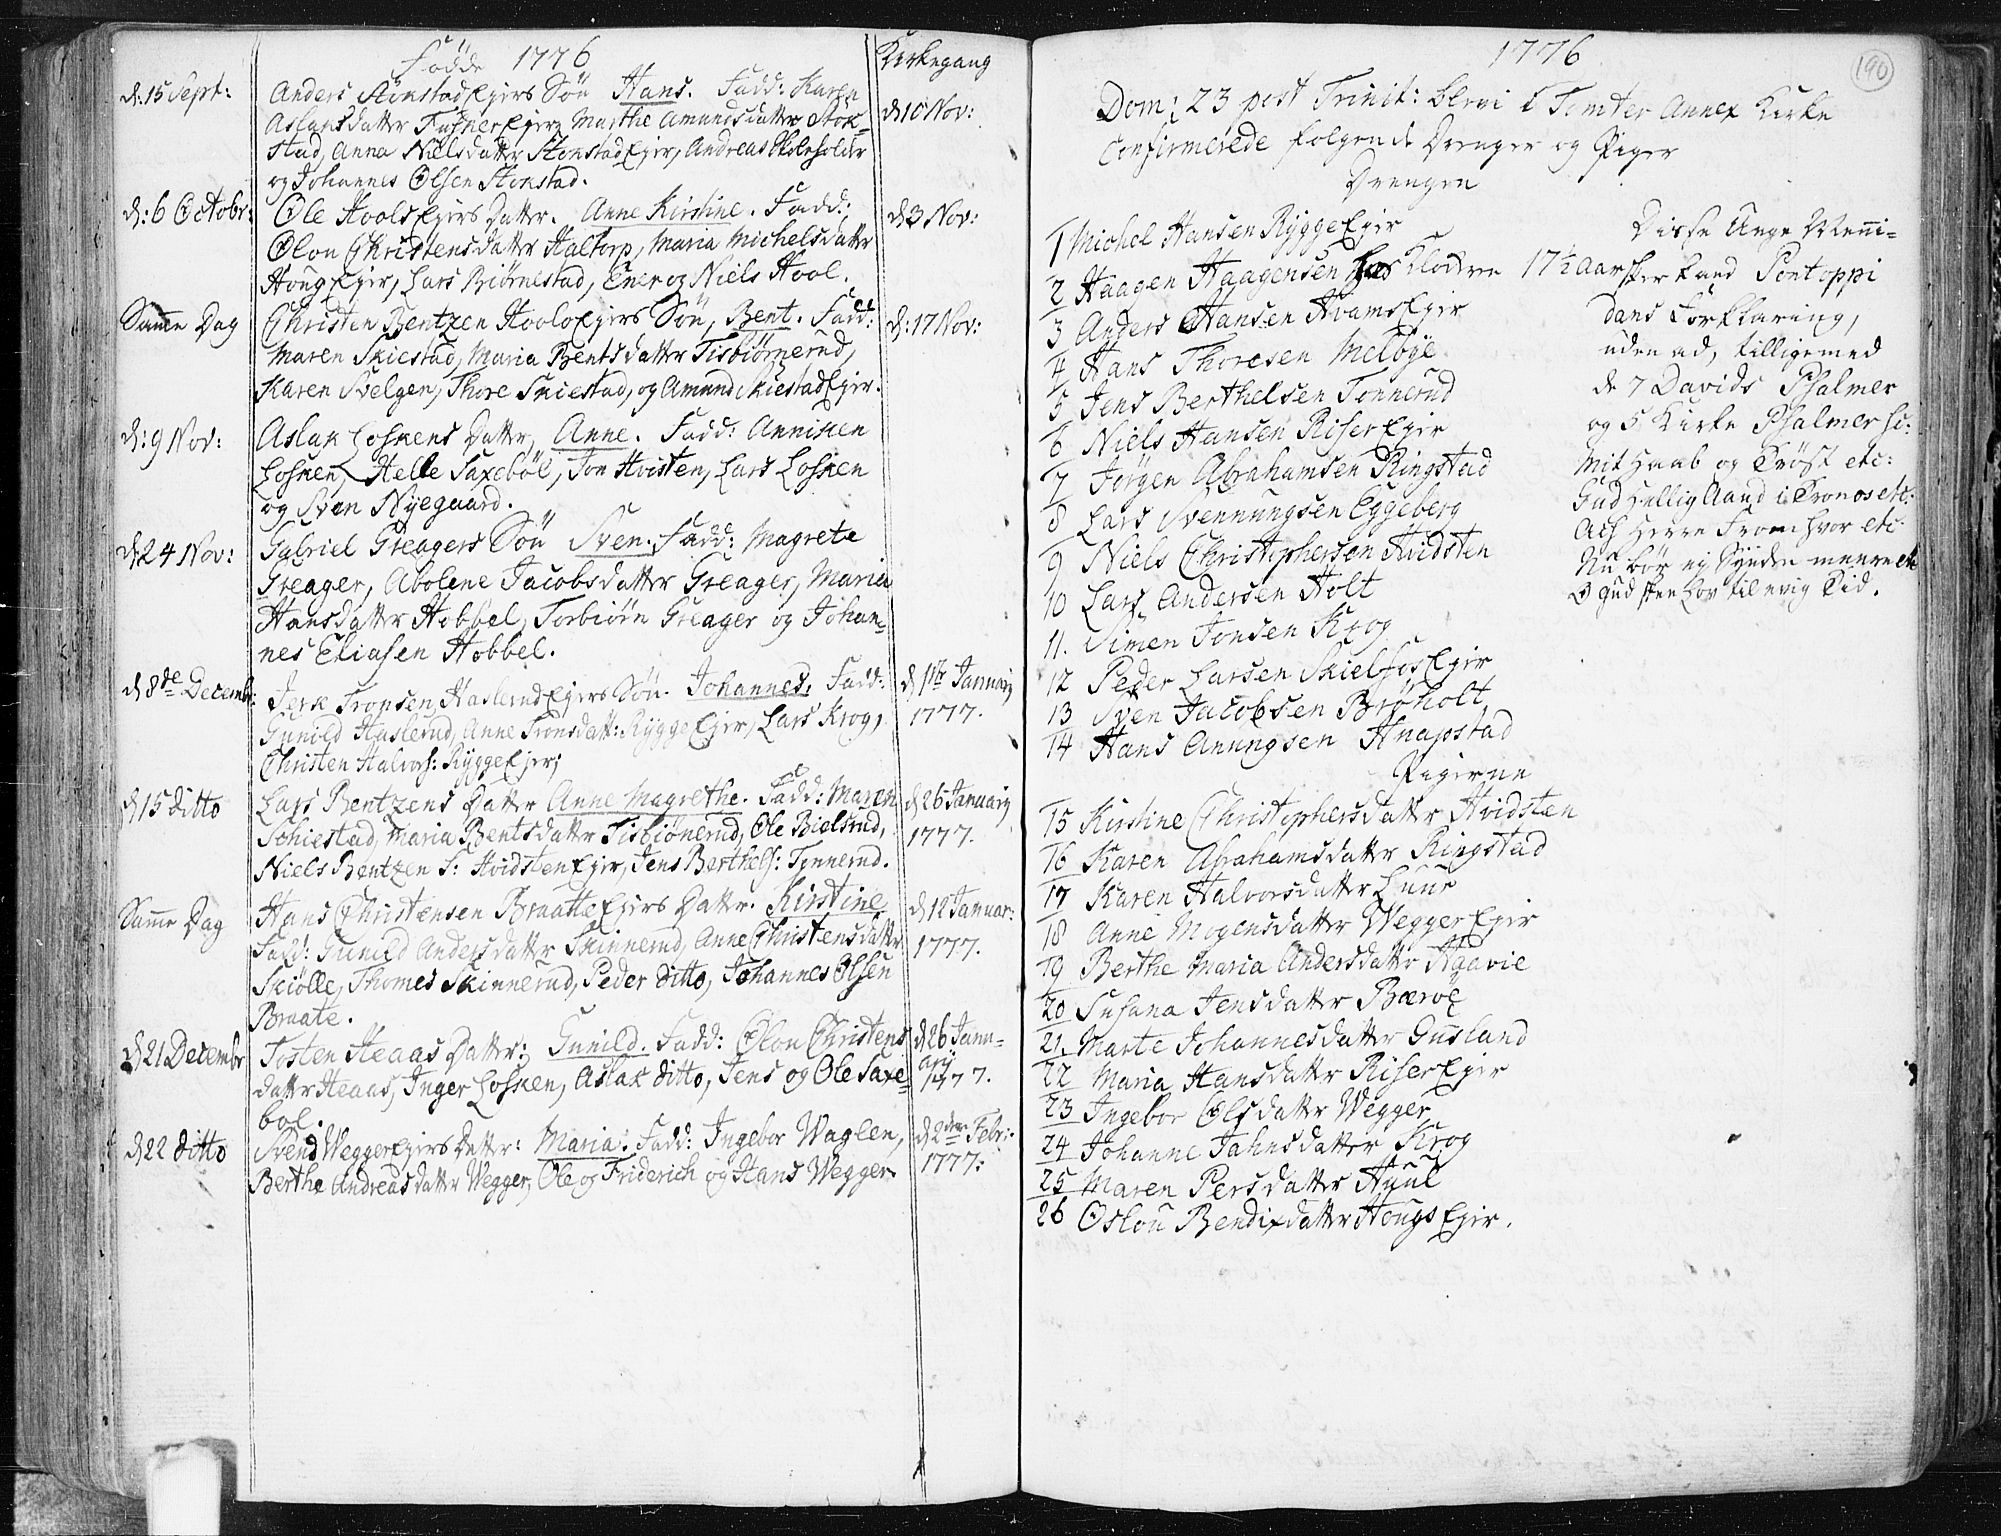 Fødde 1776
Kirkegang
d: 15 Sept:
Anders Stenstad Ejers Søn Hans. Fadd: Karen
Aslaksdatter Ejer, Marthe Amundsdatter Stok-
stad, Anna Nielsdatter Stenstad Ejer, Andreas Skoleholder
og Johannes Olsen Stenstad.
d 10 Nov:
d: 6 Octobr:
Ole Hools Ejers Datter. Anne Kirstine. Fadd:
Olou Christensdatter Haltorp, Maria Michelsdatter
Houg Ejer, Lars Biørnestad, Ener og Niels Hool.
d 3 Nov:
Samme Dag
Christen Bentzen Hools Ejers Søn, Bent. Fadd:
Maren Skiestad, Maria Bentsdatter Tisbiørnerud,
Karen Svelgen, Thore Skiestad, og Amund Skiestad Ejer.
d: 17 Nov:
d: 9 Nov:
Aslak Losnens Datter, Anne. Fadd: Anniken
Losnen, Helle Saxebøl, Jon Hvisten, Lars Losnen
og Sven Nyegaard.
d: 24 Nov:
Gabriel Greagers Søn Sven. Fadd: Magrete
Greager, Abolene Jacobsdatter Greager, Maria
Hansdatter Hobbel, Torbiørn Greager og Johan-
nes Eliasen Hobbel.
d 8de Decemb:
Jens Tronsen, Haslerud Ejers Søn. Johannes. Fadd:
Gunild Haslerud, Anne Tronsdatt: Rygge Ejer, Lars Krog,
Christen Halvors: Rygge Ejer;
d 1ste January
1777.
d 15 ditto
Lars Bentzens Datter Anne Magrethe. Fadd: Maren
Schiestad, Maria Bentsdatter Tisbiønerud, Ole Bielsrud,
Niels Bentzen S: Hvidsten Ejer, Jens Berthels: Tønnerud.
d 26 January
1777.
Samme Dag
Hans Christensen Braatte Ejers Datter. Kirstine
Fadd: Gunild Andersdatter Skinnerud, Anne Christensdatter
Skiølle, Thomes Skinnerud, Peder ditto, Johannes Olsen
Braate.
d 12 Januar:
1777.
d 21 Decembr
Tosten Heaas Datter: Gunild. Fadd: Olou Christens
datter Heaas, Inger Losnen, Aslak ditto, Jens og Ole Saxe-
bøl.
d 26 Janu-
ary
1777.
d 22 ditto
Svend Wegger Ejers Datter: Maria. Fadd: Ingebor Waglen,
Berthe Andreasdatter Wegger, Ole og Friderich og Hans Wegger
d 2den Febr:
1777:
1776
190
Dom: 23 post Trinit: blev i Tomter Annex Kirke
Confirmerede følgende Drenger og Piger
Drengene
1 Michel Hansen Rygge Ejer
2 Haagen Haagensen hos Klokkeren 17½ Aar
3 Anders Hansen Hvams Ejer
4 Hans Thoresen Melbye
5 Jens Berthelsen Tonnerud
6 Niels Hansen Riser Ejer
7 Jørgen Abrahamsen Ringstad
8 Lars Svennungsen Eggeberg
9 Niels Christophersen Hvidsten
10 Lars Andersen Holt
11. Simen Jonsen Krog
12 Peder Larsen Skielfos Ejer
13 Sven Jacobsen Brøholt
14 Hans Anungsen Knapstad
Pigerne
15 Kirstine Christophersdatter Hvidsten
16 Karen Abrahamsdatter Ringstad
17 Karen Halvorsdatter Huur
18 Anne Mogensdatter Wegger Ejer
19 Berthe Maria Andersdatter Agavie
20 Susana Jensdatter Bærøe
21. Marte Johannesdatter Gusland
22 Maria Hansdatter Riser Ejer
23 Ingebor Olsdatter Wegger
24 Johanne Jahnsdatter Krog
25 Maren Persdatter Hyul
26 Oslou Bendixdatter Hougs Ejer.
Disse Unge Menni-
sker kand Pontoppi
dans Forklaring,
uden ad, tilligemed
de 7 Davids Psalmer
og 5 Kirke Psalmer sc:
Mit Haab og Trøst etc:
Gud Hellig Aand i Tro os etc:
Ach Herre From hvor etc:
Nu bør ej Synden meere etc
O Gud skee Lov til evig Tid.